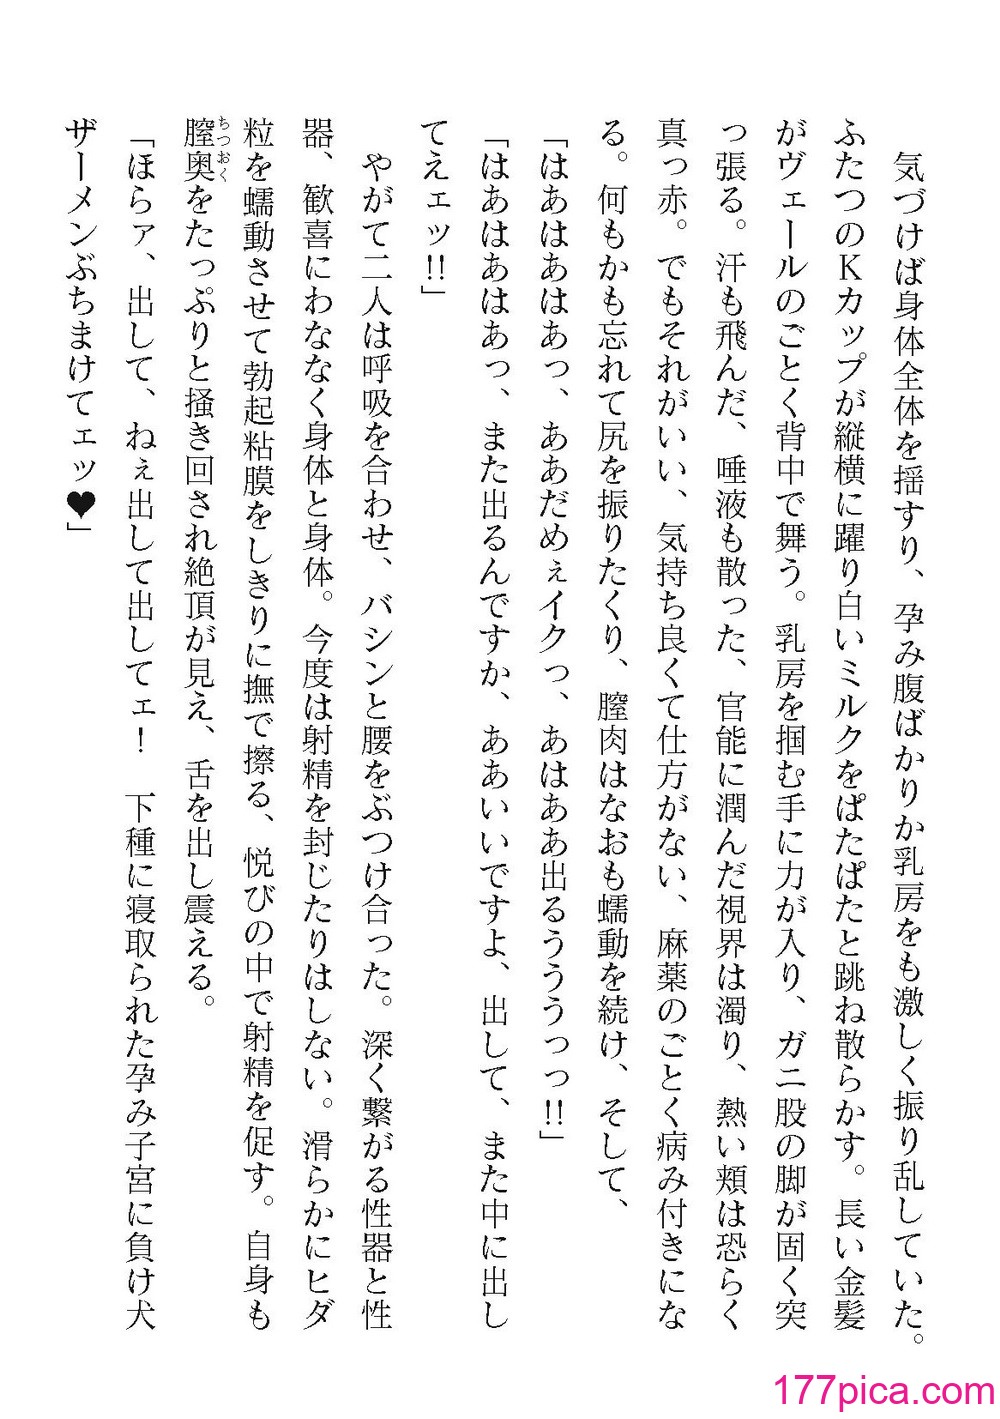 気づけば身体全体を揺すり、孕み腹ばかりか乳房をも激しく振り乱していた。
ふたつのKカップが縦横に躍り白いミルクをぱたぱたと跳ね散らかす。長い金髪
がヴェールのごとく背中で舞う。乳房を掴む手に力が入り、ガニ股の脚が固く突
っ張る。汗も飛んだ、唾液も散った、官能に潤んだ視界は濁り、熱い頬は恐らく
真っ赤。でもそれがいい、気持ち良くて仕方がない、麻薬のごとく病み付きにな
る。何もかも忘れて尻を振りたくり、膣肉はなおも蠕動を続け、そして、
「はあはあはあっ、ああだめぇイクっ、あはああ出るうううっっ!!」
「はあはあはあっ、また出るんですか、ああいいですよ、出して、また中に出し
てえェッ!!」
やがて二人は呼吸を合わせ、バシンと腰をぶつけ合った。深く繋がる性器と性
器、歓喜にわななく身体と身体。今度は射精を封じたりはしない。滑らかにヒダ
粒を蠕動させて勃起粘膜をしきりに撫で擦る、悦びの中で射精を促す。自身も
膣奥ちつおくをたっぷりと掻き回され絶頂が見え、舌を出し震える。
「ほらァ、出して、ねぇ出して出してェ！　下種に寝取られた孕み子宮に負け犬
ザーメンぶちまけてェッ♥」
177pica.com